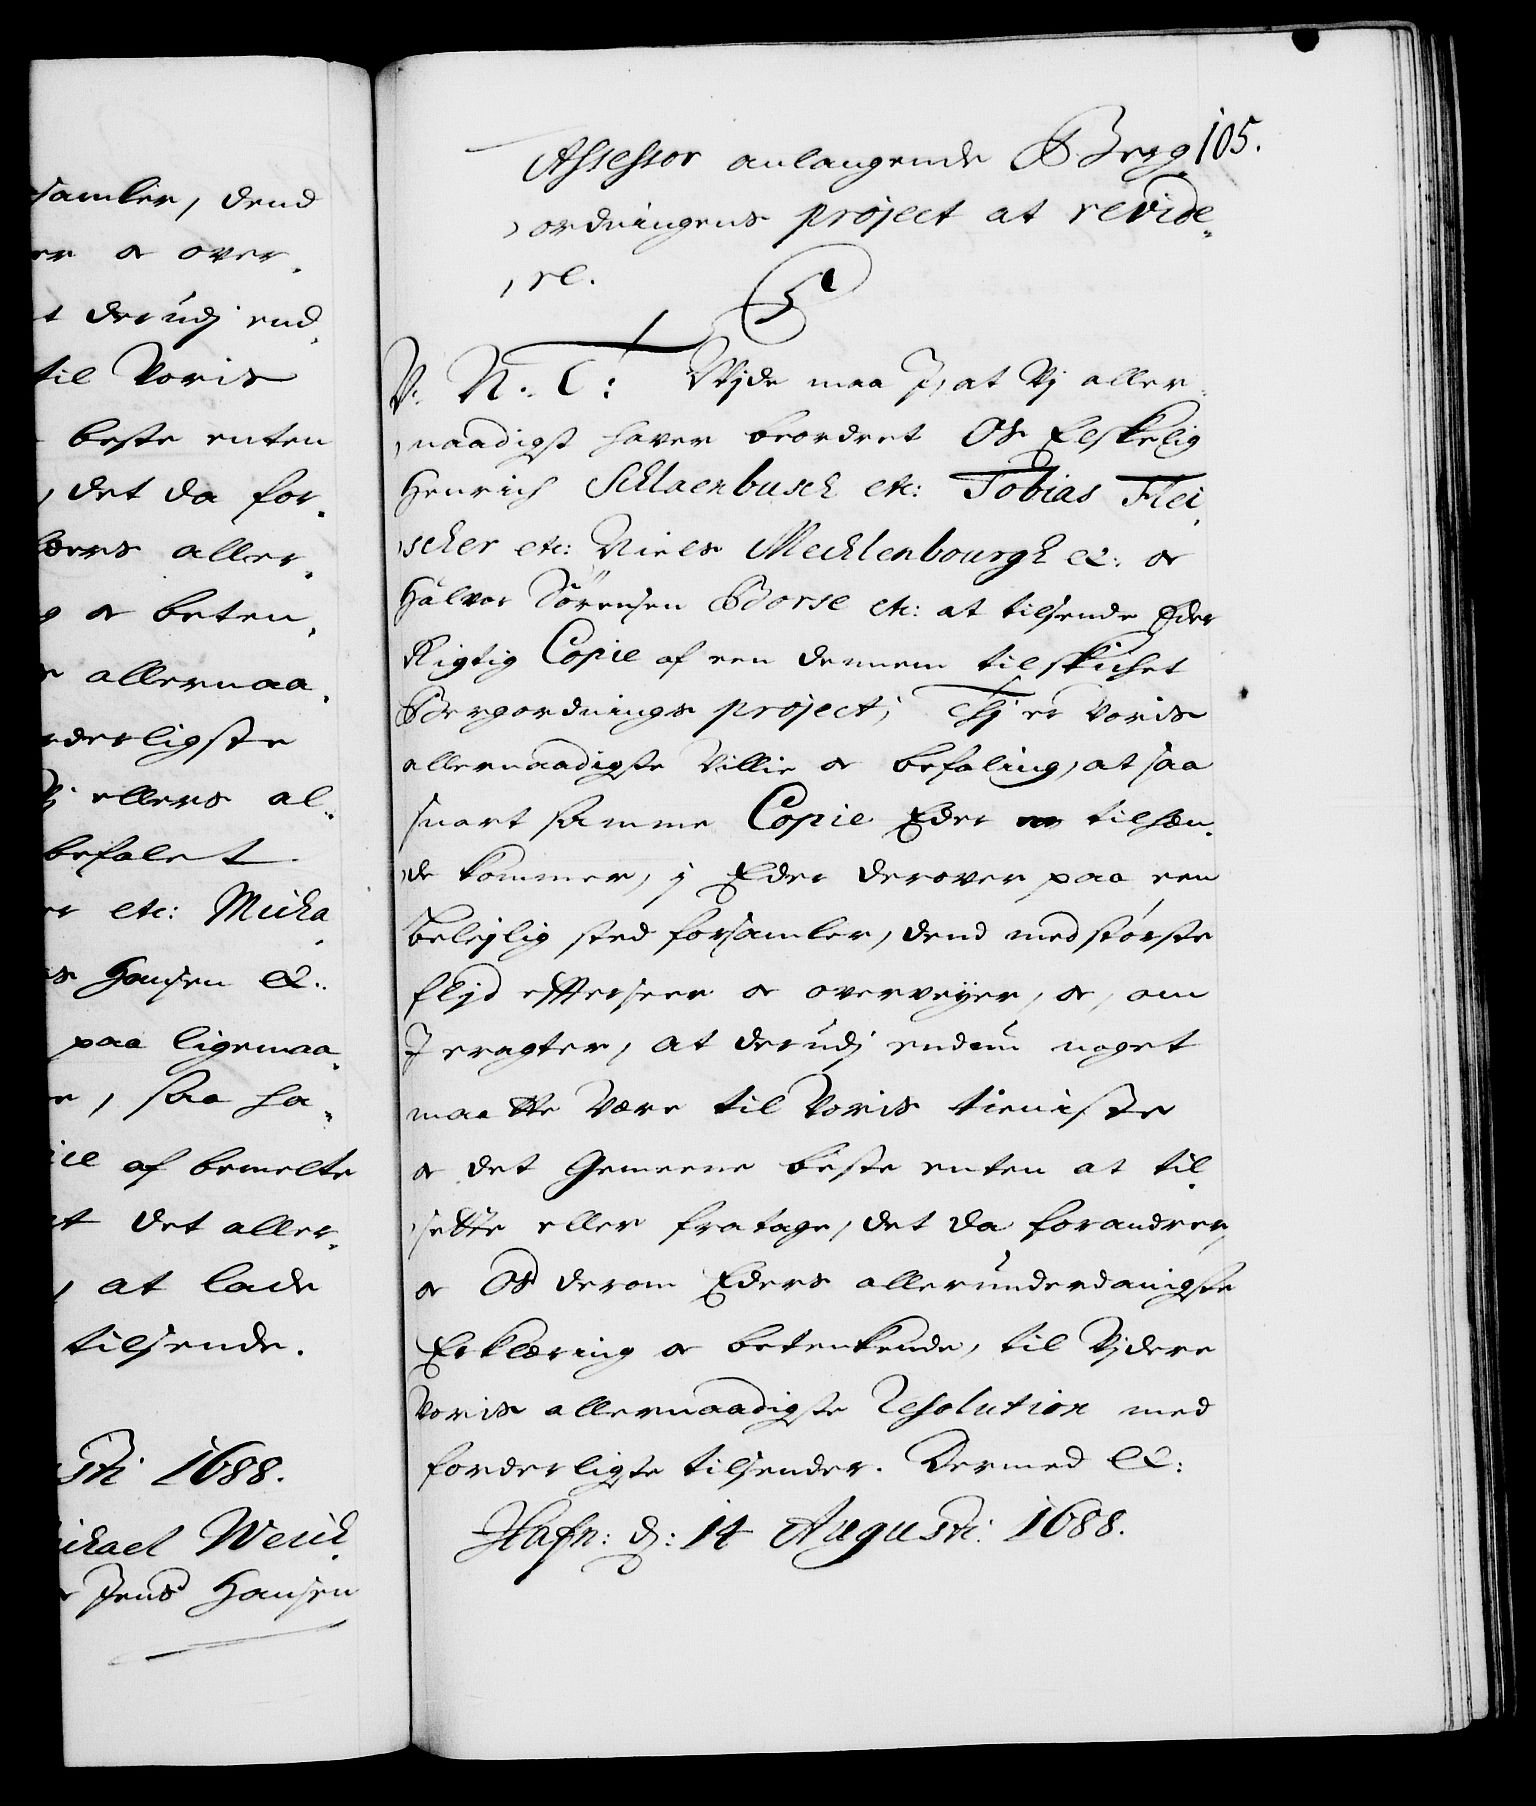 samler, dend
er & over¬
t derudj end¬
til Voris
beste enten
, det da for¬
aller¬
g & beten¬
allernaa¬
rderligste
Vj ellers al¬
befalet
er etc: Micha
es Hansen &:
paa ligemaa¬
e, saa ha¬
ice af bemelte
et det aller¬
, at lade
tilsende.
sti 1688.
ichael Werick
& Jens Hansen
105.
Assessor anlangende Berg¬
ordningens project at revide¬
re.
V. N. C: Vjde maa J, at Vj aller¬
naadigst haver beordret Os Elskelig
Henrich Schlaenbusch etc: Tobias Flei¬
scher etc: Niels Mechlenbourgh &: &
Halvor Sörensen Borse etc: at tilsende Eder
Rigtig Copie af een dennem tilskichet
Bergordnings project; Thj er Voris
allernaadigste Villie & befaling, at saa
snart samme Copie Eder tilhæn¬
de kommer, j Eder derover paa een
beleylig sted forsamler, dend med störste
flijd efterseer & overveyer, &, om
J eragter, at derudj endnu noget
maatte være til Voris tieniste
& det Gemeene beste enten at til¬
sette eller fratage, det da forandrer,
& Os derom Eders allerunderdanigste
Erklæring & betenkende, til Vjdere
Voris allernaadigste Resolution med
forderligste tilsender. Dermed &:
Hafn: d: 14 Augusti 1688.